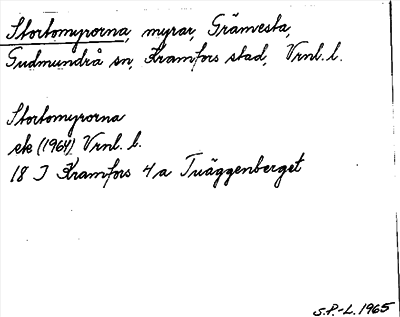 Stortomyrorna, myrar, Grämvesta,
Gudmundrå sn, Kramfors stad, Vrnl. l.
Stortomyrorna
ek (1964) Vrnl. l.
18 J Kramfors 4 a Tväggenberget
S.P.-L. 1965